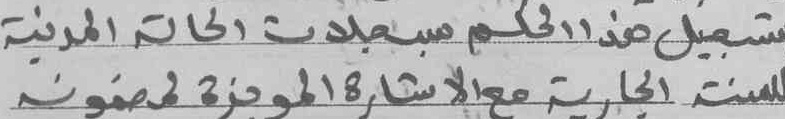 بتسجيل هذا الحكم بسجلات الحالة المدنية
للسنة الجارية مع الاشارة الموجزة لمضمونه